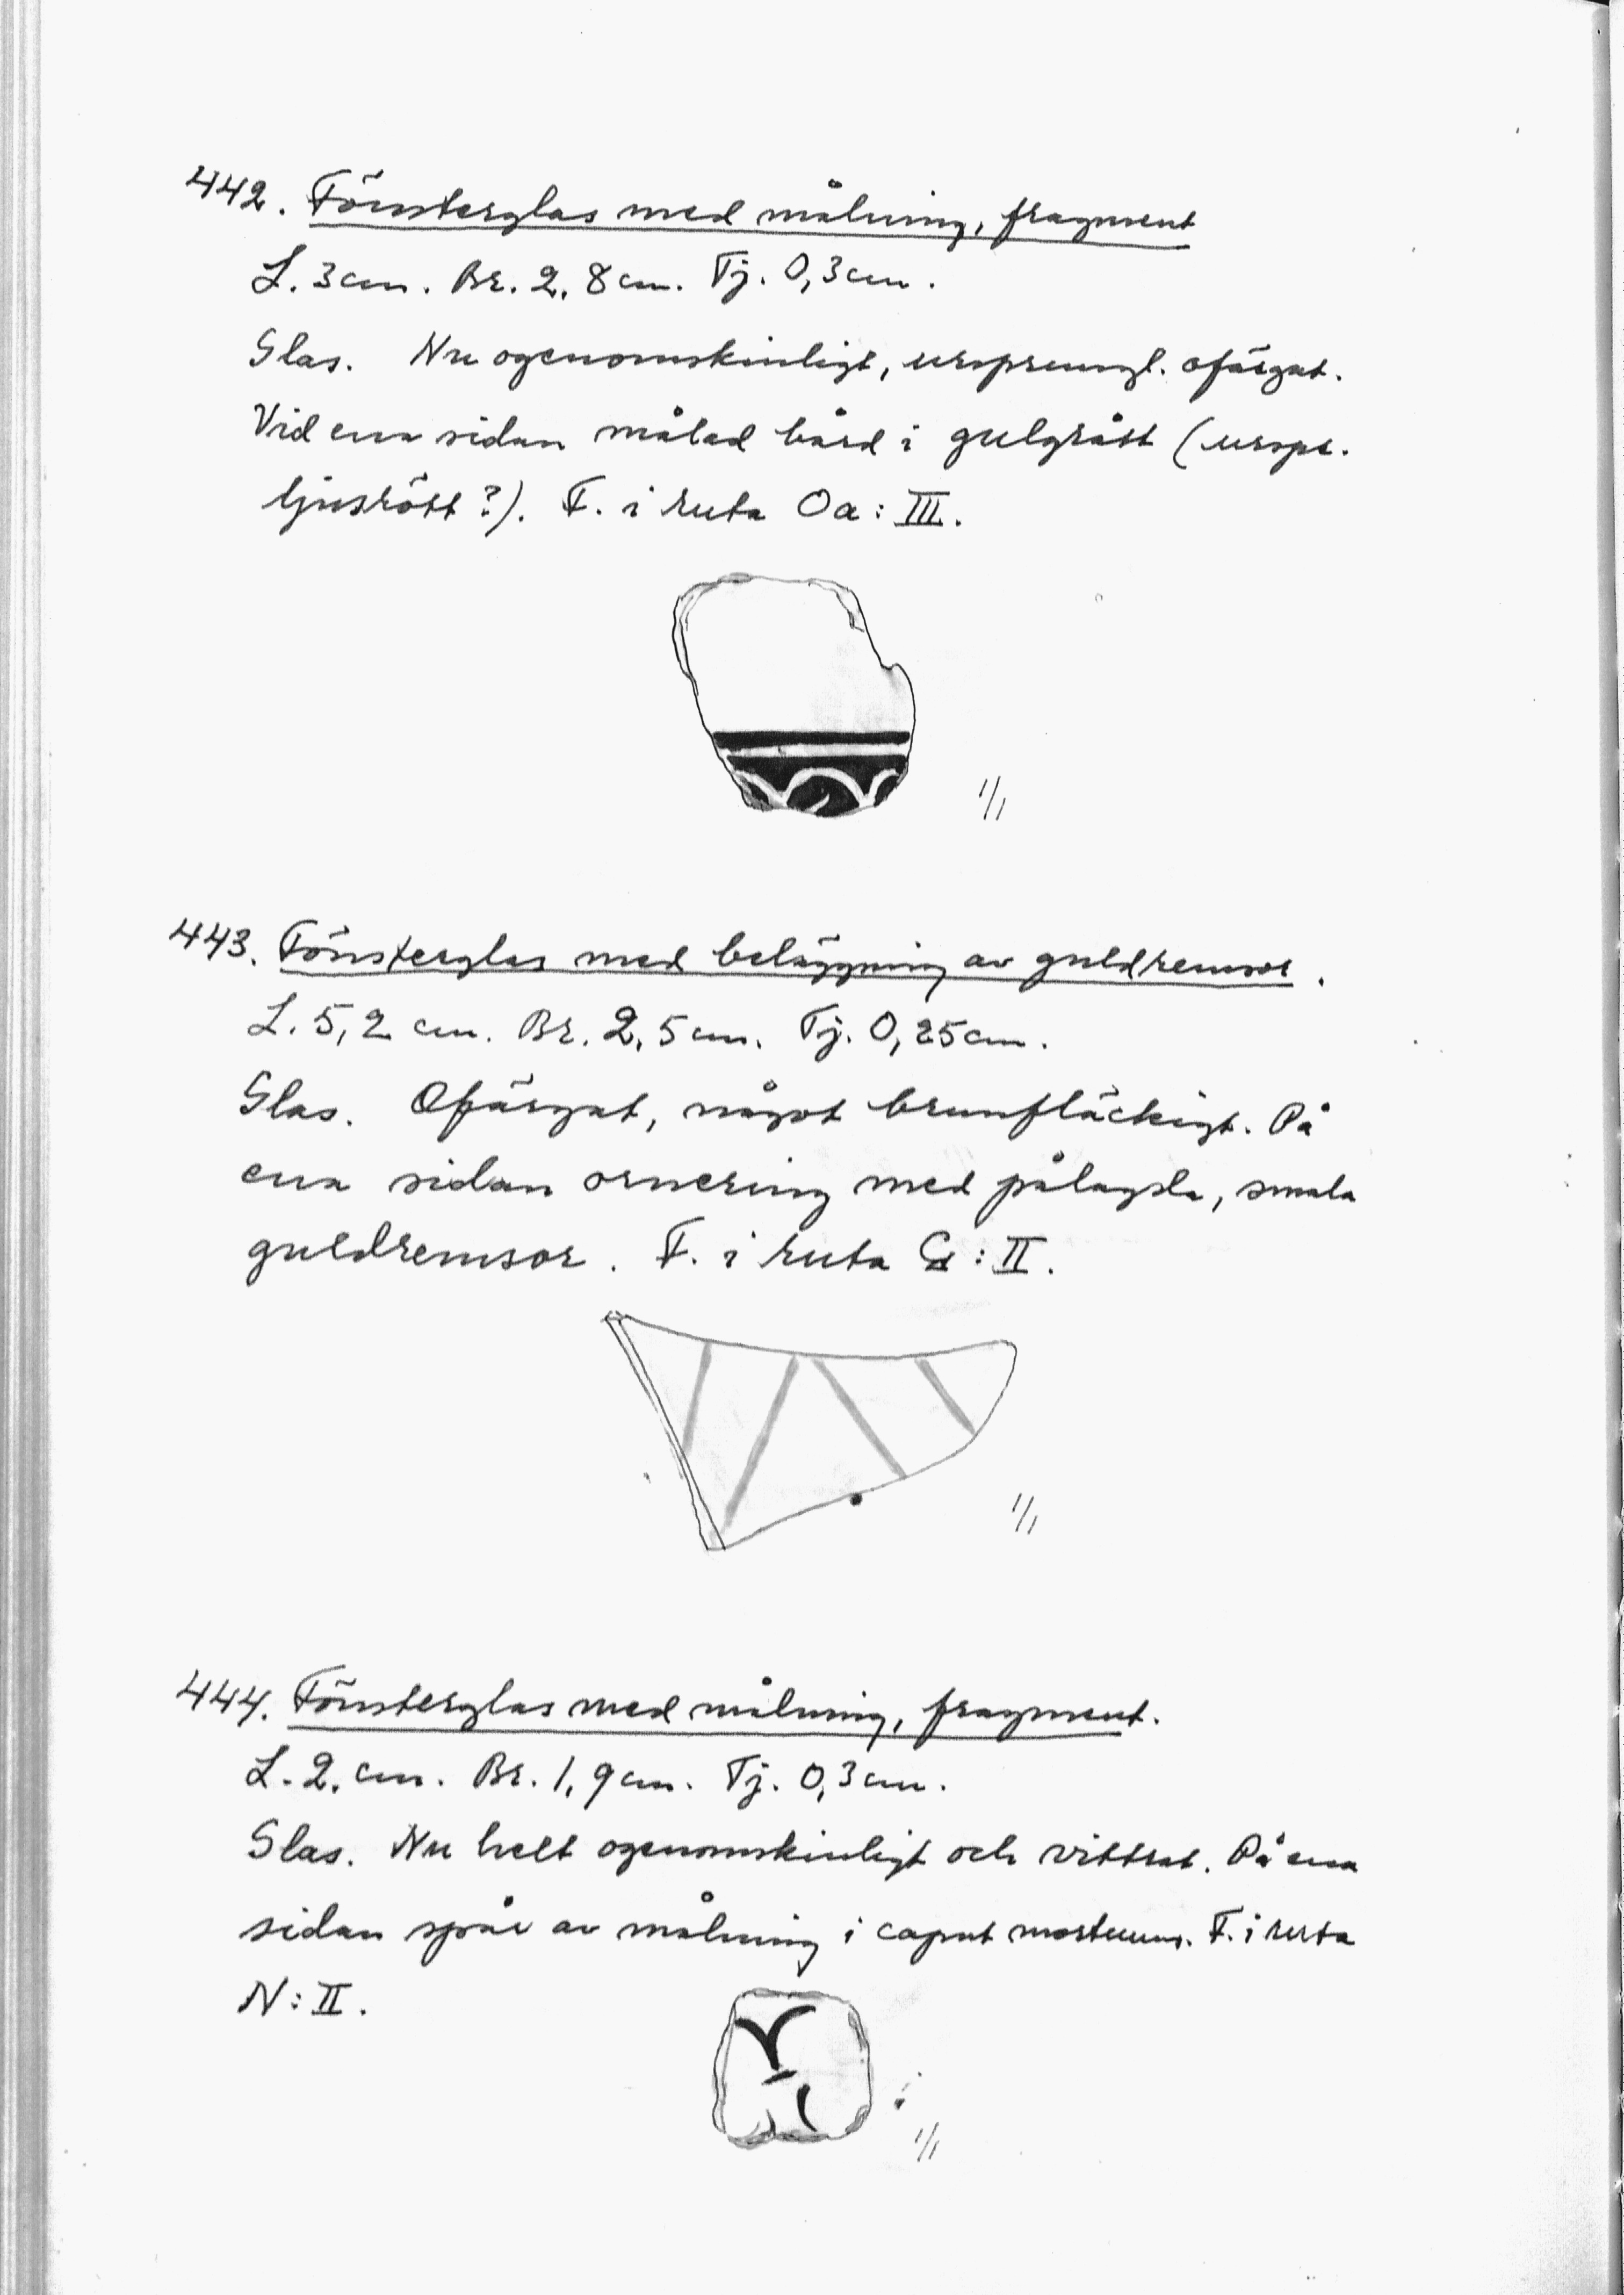 442. Fönsterglas med målning, fragment
L. 3 cm. Br. 2,8 cm. Tj. 0,3 cm.
Glas. Nu ogenomskinligt, ursprungl. ofärgat.
Vid ena sidan målad bård i gulgrått (urspr.
ljusrött?). F. i ruta Oa: III.
1/1
443. Fönsterglas med beläggning av guldremsor.
L. 5,2 cm. Br. 2,5 cm. Tj. 0,25 cm.
Glas. Ofärgat, något brunfläckigt. På
ena sidan ornering med pålagda, smala
guldremsor. F. i ruta G: II.
1/1
444. Fönsterglas med målning, fragment.
L. 2. cm. Br. 1,9 cm. Tj. 0,3 cm.
Glas. Nu helt ogenomskinligt och vittrat. På ena
sidan spår av målning i caput mortuum. F. i ruta
N: II.
1/1